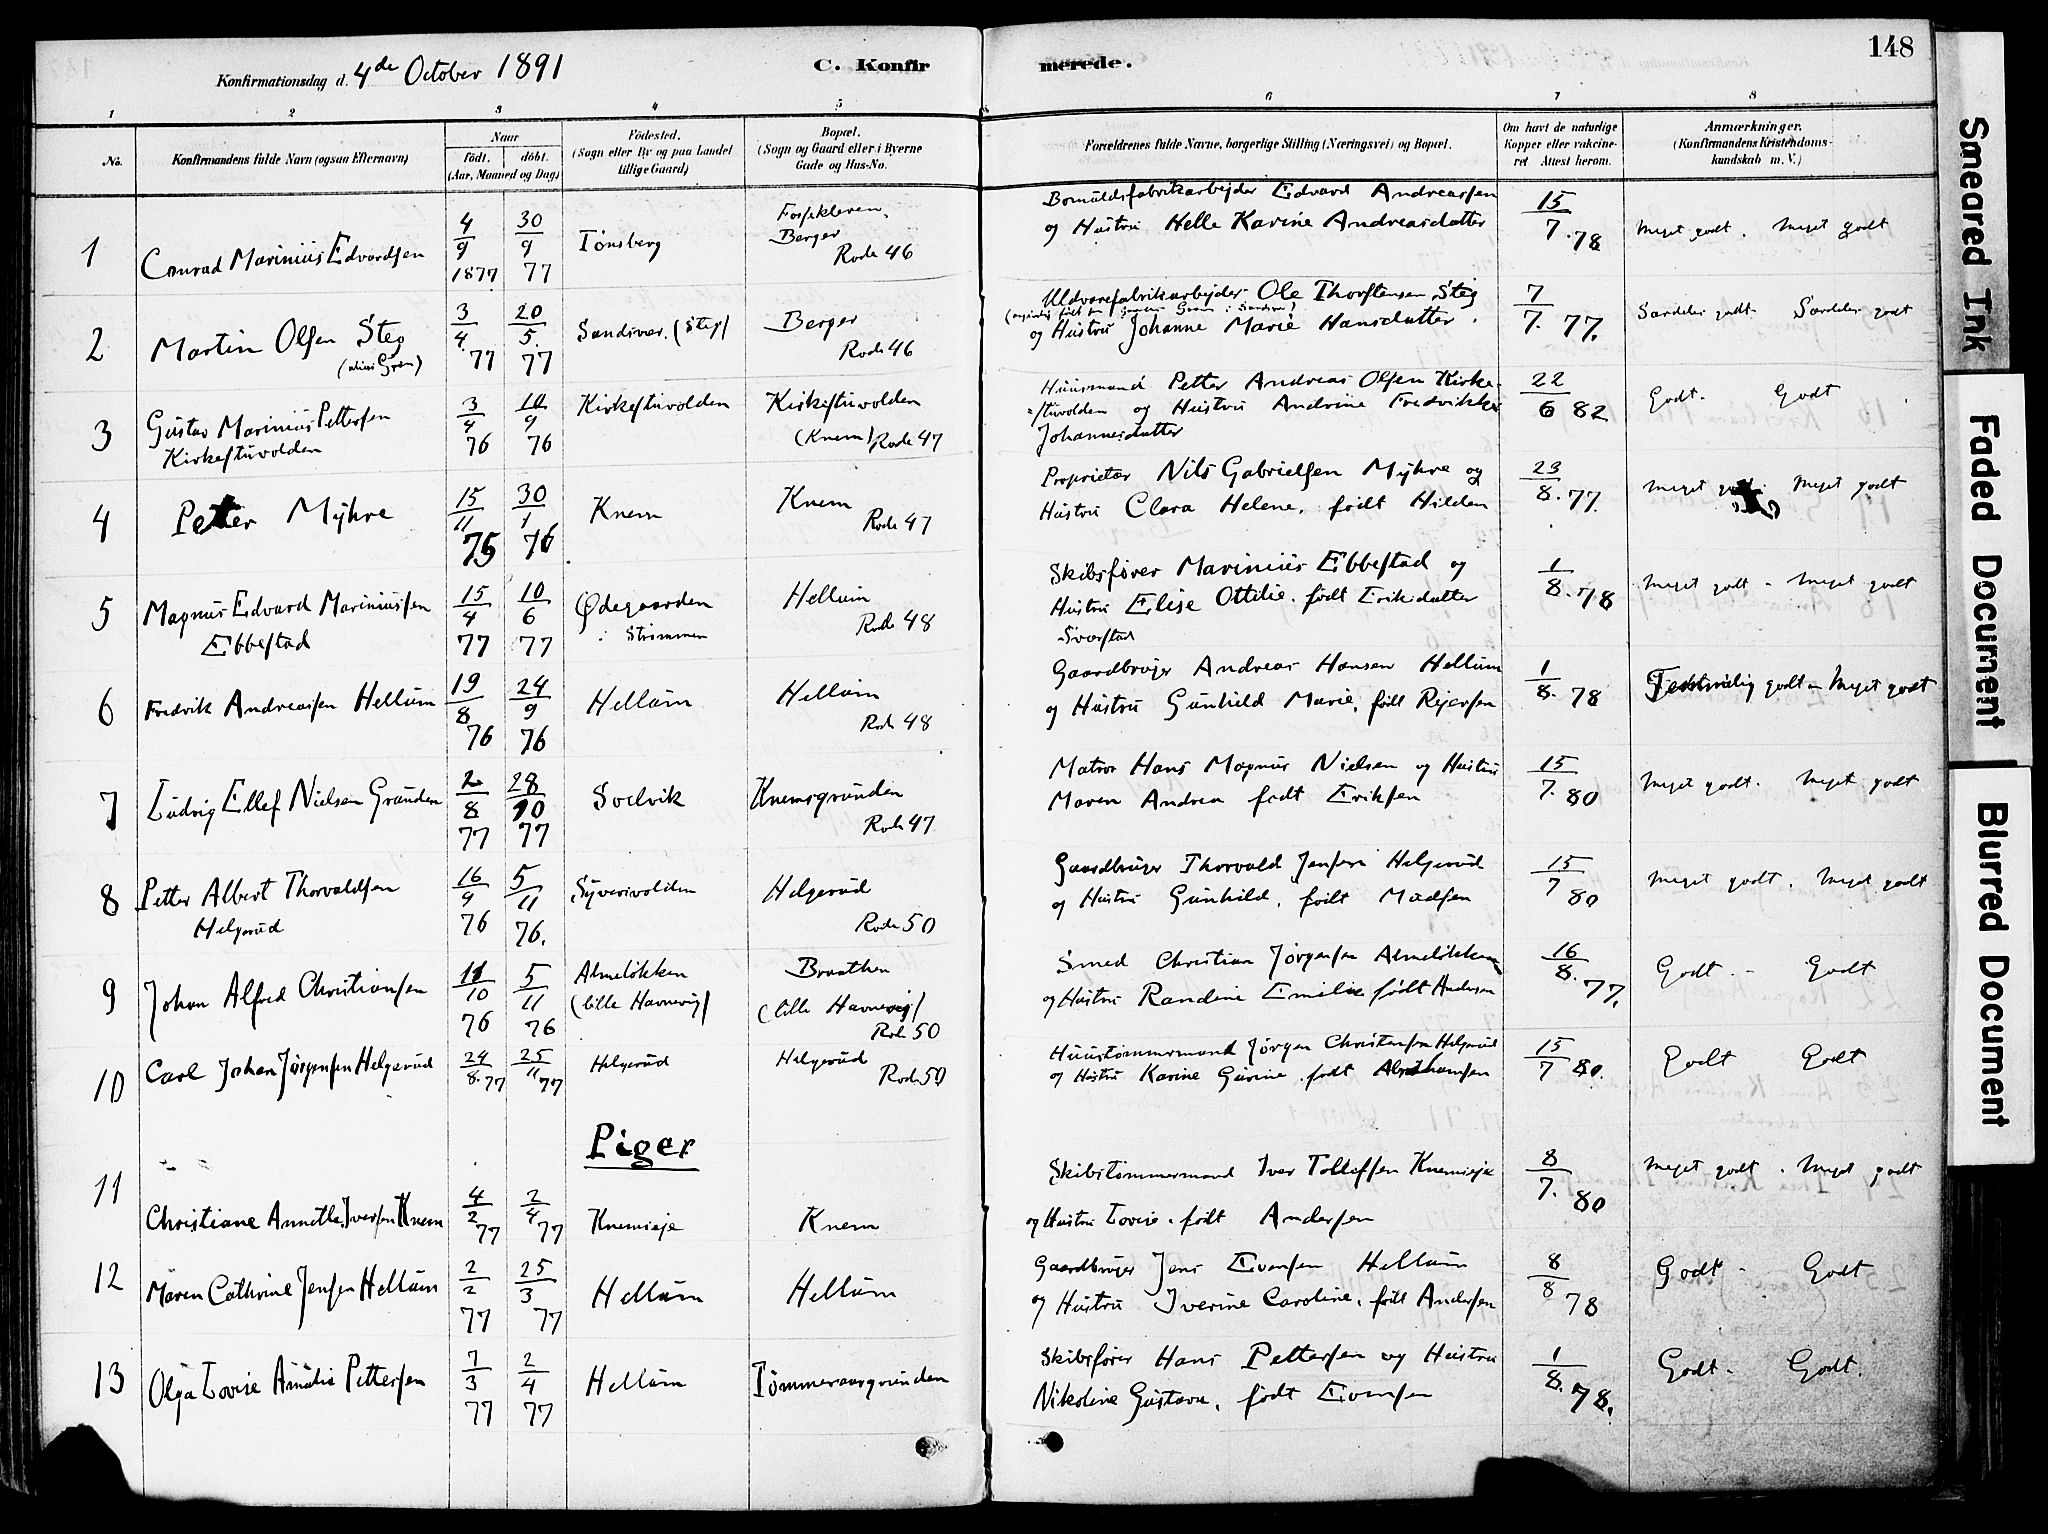 148
Konfirmationsdag d. 4de October 1891
C. Konfirmerede.
1 2 3 4 5 6 7 8
No.
Konfirmandens fulde Navn (ogsaa Efternavn)
Naar
födt. döbt.
(Aar, Maaned og Dag)
Födested.
(Sogn eller By og paa Landet
tillige Gaard)
Bopæl.
(Sogn og Gaard eller i Byerne
Gade og Hus-No.
Forældrenes fulde Navne, borgerlige Stilling (Næringsvei) og Bopæl.
Om havt de naturlige
Kopper eller vakcine-
ret Attest herom.
Anmærkninger.
(Konfirmandens Kristendoms-
kundskab m. V.)
1 Conrad Marinius Edvardsen
4/9 1877 30/9 77
Tønsberg
Fossekleven,
Berger
Rode 46
Bomuldsfabrikarbejder Edvard Andreassen
og Hustru Helle Karine Andreasdatter
15/7. 78
Meget godt. Meget godt
2 Martin Olsen Steg
(alias Grøn)
3/4. 77 20/5. 77
Sandsvær. (Steg)
Berger
Rode 46
Uldvarefabrikarbejder Ole Thorstensen Steg
og Hustru Johanne Marie Hansdatter.
7/7. 77.
Særdeles godt. Særdeles godt
3 Gustav Marinius Pettersen
Kirkestuvolden
3/4 76 10/9 76
Kirkestuvolden
Kirkestuvolden
(Knem) Rode 47
Huusmand Petter Andreas Olsen Kirke-
stuvolden og Hustru Andrine Fredrikke
Johannesdatter
22/6 82
Godt. Godt
4 Petter Myhre
15/11 75 30/1 76
Knem
Knem
Rode 47
Proprietær Nils Gabrielsen Myhre og
Hustru Clara Helene, født Hilden
23/8. 77.
Meget godt. Meget godt
5 Magnus Edvard Mariniussen
Ebbestad
15/4 77 10/6 77
Ødegaarden
i Strømmen
Hellum
Rode 48
Skibsfører Marinius Ebbestad og
Hustru Elise Ottilie. født Eriksdatter
Sværstad
1/8. 78
Meget godt - Meget godt
6 Fredrik Andreassen Hellum
19/8 76 24/9 76
Hellum
Hellum
Rode 48
Gaardbruger Andreas Hansen Hellum
og Hustru Gunhild Marie, født Rejersen
1/8. 78
Temmelig godt - Meget godt
7 Ludvig Ellef Nielsen Grunden
2/8 77 28/10 77
Soelvik
Knemsgrunden
Rode 47
Matros Hans Magnus Nielsen og Hustru
Maren Andrea født Eriksen
15/7. 80
Meget godt. Meget godt
8 Petter Albert Thorvaldsen
Helgerud
16/9 76 5/11 76.
Syverivolden
Helgerud
Rode 50
Gaardbruger Thorvald Jensen Helgerud
og Hustru Gunhild, født Madsen
15/7 80
Meget godt. Meget godt
9 Johan Alfred Christiansen
11/10 76 5/11 76
Almeløkken
(lille Havnevig)
Braathen
(lille Havnevig)
Rode 50
Smed Christian Jørgensen Almeløkken
og Hustru Randine Emilie født Andersen
16/8. 77.
Godt. - Godt
10 Carl Johan Jørgensen Helgerud
24/8. 77 25/11 77
Helgerud
Helgerud
Rode 50
Huustømmermand Jørgen Christensen Helgerud
og Hustru Karine Gurine. født Abrahamsen
15/7 80.
Godt Godt
Piger
11 Christiane Annette Iversen Knem
4/2 77 2/4 77
Knemseje
Knem
Skibstømmermand Iver Tollefsen Knemseje
og Hustru Lovise. født Andersen
8/7. 80
Meget godt. Meget godt
12 Maren Cathrine Jensen Hellum
2/2 77 25/3 77
Hellum
Hellum
Gaardbruger Jens Evensen Hellum
og Hustru Iverine Caroline, født Andersen
8/8 78
Godt - Godt
13 Olga Lovise Amalie Pettersen
7/3 77 2/4 77
Hellum
Tømmeraasgrunden
Skibsfører Hans Pettersen og Hustru
Nikoline Gustava, født Evensen
1/8. 78.
Godt - Godt.
Smeared Ink
Faded Document
Blurred Document